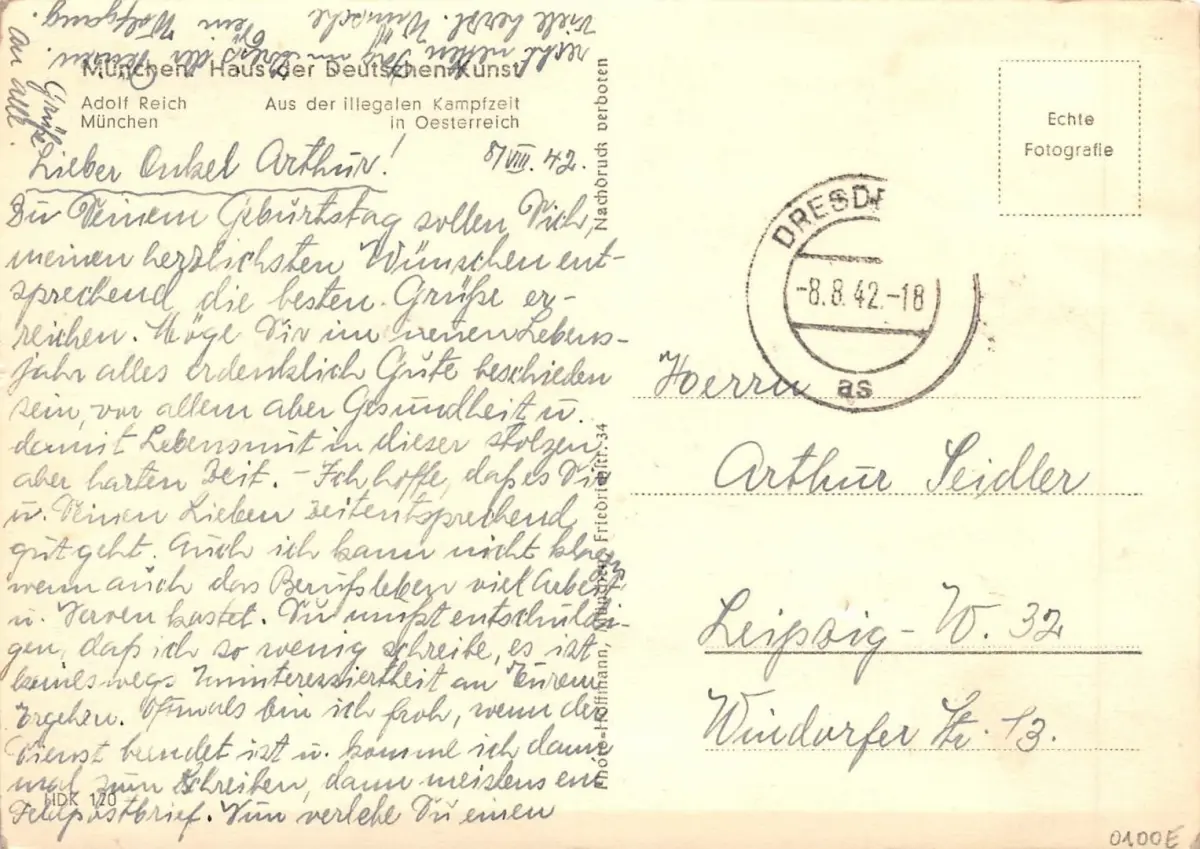 München, Haus der Deutschen Kunst
Adolf Reich
München
Aus der illegalen Kampfzeit
in Oesterreich
Lieber Onkel Arthur!
8/VIII. 42.
Zu Deinem Geburtstag sollen Dich,
meinen herzlichsten Wünschen ent-
sprechend die besten Grüße er-
reichen. Möge Dir im neuen Lebens-
jahr alles erdenklich Gute beschieden
sein, vor allem aber Gesundheit u.
damit Lebensmut in dieser stolzen
aber harten Zeit. - Ich hoffe, daß es Dir
u. Deinen Lieben zeitentsprechend
gut geht. Auch ich kann nicht klagen
wenn auch das Berufsleben viel Arbeit
u. Nerven kostet. Du mußt entschuldi-
gen, daß ich so wenig schreibe, es ist
keineswegs Uninteressiertheit an Eurem
Ergehen. Oftmals bin ich froh, wenn der
Dienst beendet ist u. komme ich dann
mal zum Schreiben, dann meistens ein
Feldpostbrief. Nun verlebe Du einen
recht netten Tag im Kreis der Deinen.
Viele herzl. Wünsche
Dein Wolfgang
Grüße
an alle.
HDK 120
Photo-Hoffmann, München, Friedrichstr. 34
Nachdruck verboten
Echte
Fotografie
DRESD
-8.8.42.-18
as
Herrn
Arthur Seidler
Leipzig - W. 32
Windorfer Str. 13.
0100E